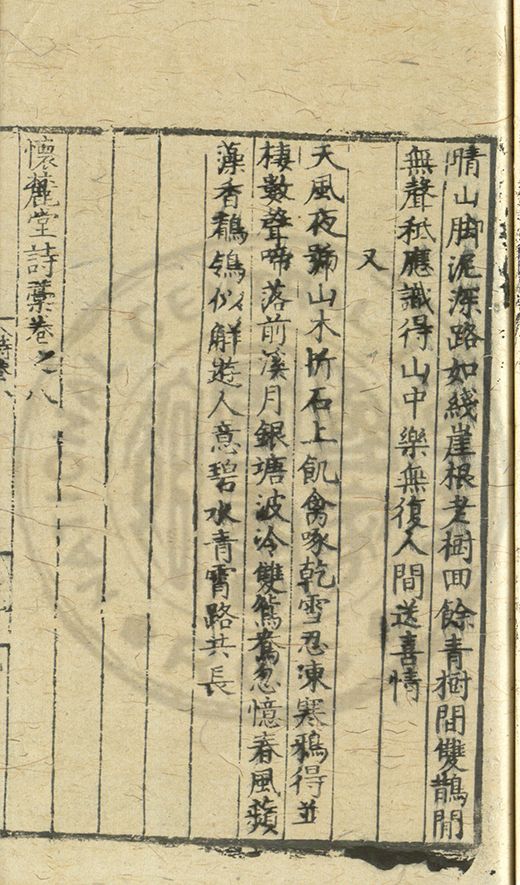 晴山脚泥深路如綫崖根老樹回餘青樹間雙鵲閒
無聲秖應識得山中樂無復人間送喜情
又
天風夜號山木折石上飢禽啄乾雪忍凍寒鴉得並
棲數聲啼落前溪月銀塘波冷雙鴛鴦忽憶春風蘋
藻香鶺鴒似解遊人意碧水青霄路共長
懷麓堂詩藁卷之八